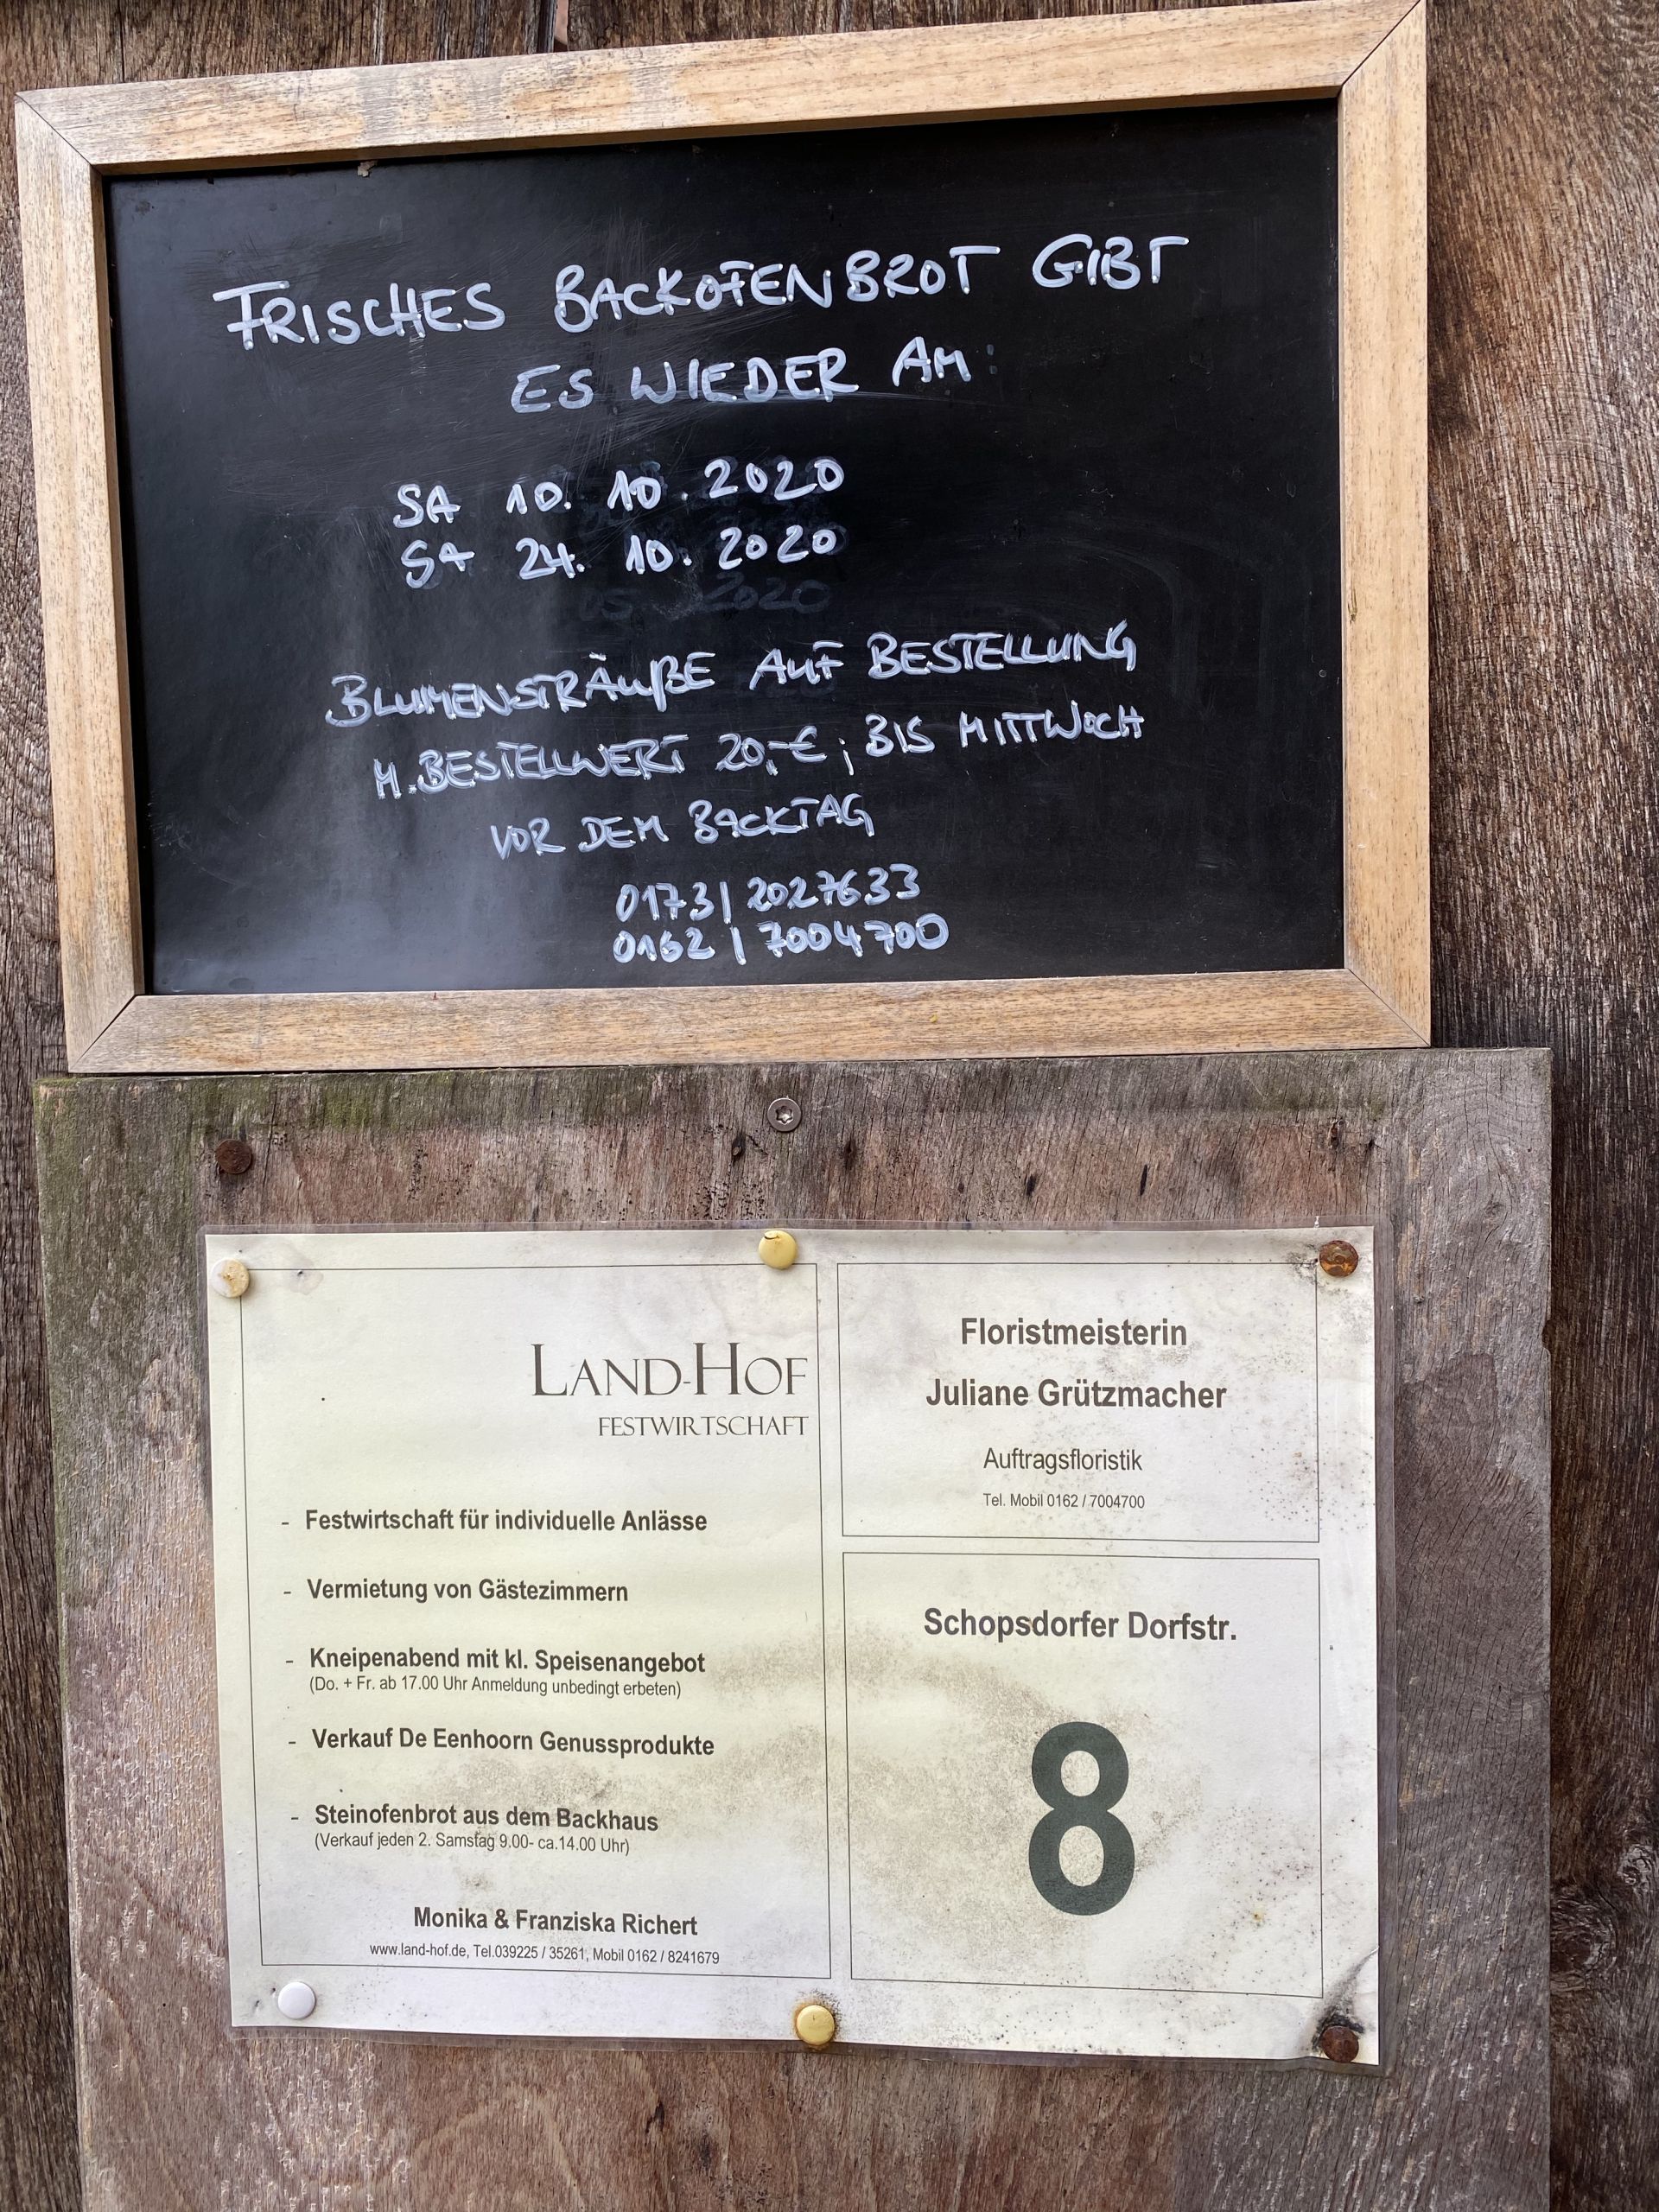 FRISCHES BACKOFENBROT GIBT
ES WIEDER AM
SA 10. 10. 2020
SA 24. 10. 2020
BLUMENSTRÄUßE AUF BESTELLUNG
M. BESTELLWERT 20,-€ ; BIS MITTWOCH
VOR DEM BACKTAG
0173 | 2027633
0162 | 7004700
LAND-HOF
FESTWIRTSCHAFT
- Festwirtschaft für individuelle Anlässe
- Vermietung von Gästezimmern
- Kneipenabend mit kl. Speisenangebot
(Do. + Fr. ab 17.00 Uhr Anmeldung unbedingt erbeten)
- Verkauf De Eenhoorn Genussprodukte
- Steinofenbrot aus dem Backhaus
(Verkauf jeden 2. Samstag 9.00- ca.14.00 Uhr)
Monika & Franziska Richert
www.land-hof.de, Tel.039225 / 35261, Mobil 0162 / 8241679
Floristmeisterin
Juliane Grützmacher
Auftragsfloristik
Tel. Mobil 0162 / 7004700
Schopsdorfer Dorfstr.
8